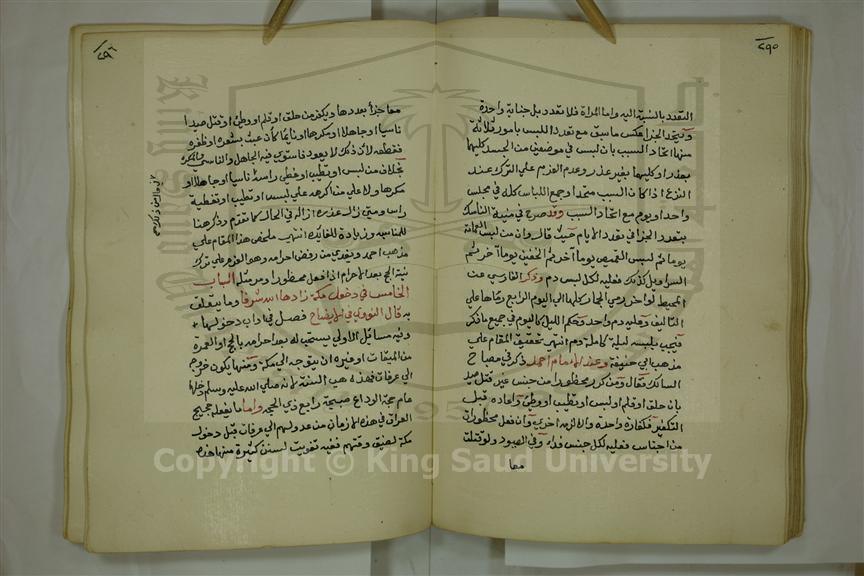 ٢٩٥
التعدد بالنسبة اليه واما المراة فلا تعدد بل جناية واحدة
ويتحد الجزا عكس ماسبق مع تعدد اللبس بامور ثلاثة
منها اتحاد السبب بان لبس في موضعين من الجسد كليهما
بعذر او كليهما بغير عذر وعدم العزم على الترك عند
النزع اذا كان السبب متحدا وجمع اللباس كله في مجلس
واحد او يوم مع اتحاد السبب وقد صرح في منية الناسك
بتعدد الجزا في تعدد الايام حيث قال وان من لبس العمامة
يوما ثم لبس القميص يوما آخر ثم الخفين يوما آخر ثم
السراويل كذلك فعليه لكل لبس دم وذكر الفارسي عن
المحيط لو اخر رمي الجمار كلها الى اليوم الرابع رماها على
التاليف وعليه دم واحد وحكم الليل كاليوم في جميع ما ذكر
فيجب بلبسه ليلة كاملة دم انتهى تحقيق المقام على
مذهب ابي حنيفة وعند الامام احمد ذكر في مصباح
السالك فقال ومن كرر محظورا من جنس غير قتل صيد
بان حلق او قلم او لبس او تطيب او وطئ واعاده قبل
التكفير فكفارة واحدة والا لزمه اخرى وان فعل محظورات
من اجناس فعليه لكل جنس فداء وفي الصيود ولو قتلت
معا
٢٩٦
معا جزأ بعددها ويكفر من حلق او قلم او وطئ او قتل صيدا
ناسيا او جاهلا او مكرها او نايما كان عبث بشعره او ظفره
فقطعه لان ذلك لا يعود فاستوى فيه الجاهل والناسي والمكره
بخلاف من لبس او تطيب او غطى راسه ناسيا او جاهلا او
مكرها ولا على من اكره على لبس او تطيب او تغطية
راسا ومتى زال عذره ازاله في الحال كما تقدم وذكر هنا
للمناسبة وزيادة للفائدة انتهى ملخص هذا المقام على
مذهب احمد ويفدي من رفض احرامه وهو العزم على ترك
نية الحج بعد الاحرام اذا فعل محظورا ومر مثله الباب
الخامس في دخول مكة زادها الله شرفا وما يتعلق
به قال النووي في الايضاح فصل في اداب دخولها
وفيه مسائل الاولى يستحب له بعد احرامه بالحج او العمرة
من الميقات او غيره ان يتوجه الى مكة ومنها يكون خروجه
الى عرفات فهذه هي السنة لانه صلى الله عليه وسلم دخلها
عام حجة الوداع صبيحة رابع ذي الحجه واما ما يفعله حجيج
العراق في هذه الازمان من عدولهم الى عرفات قبل دخول
مكة لضيق وقتهم ففيه تفويت لسنن كثيرة منها هذه
Copyright © King Saud University